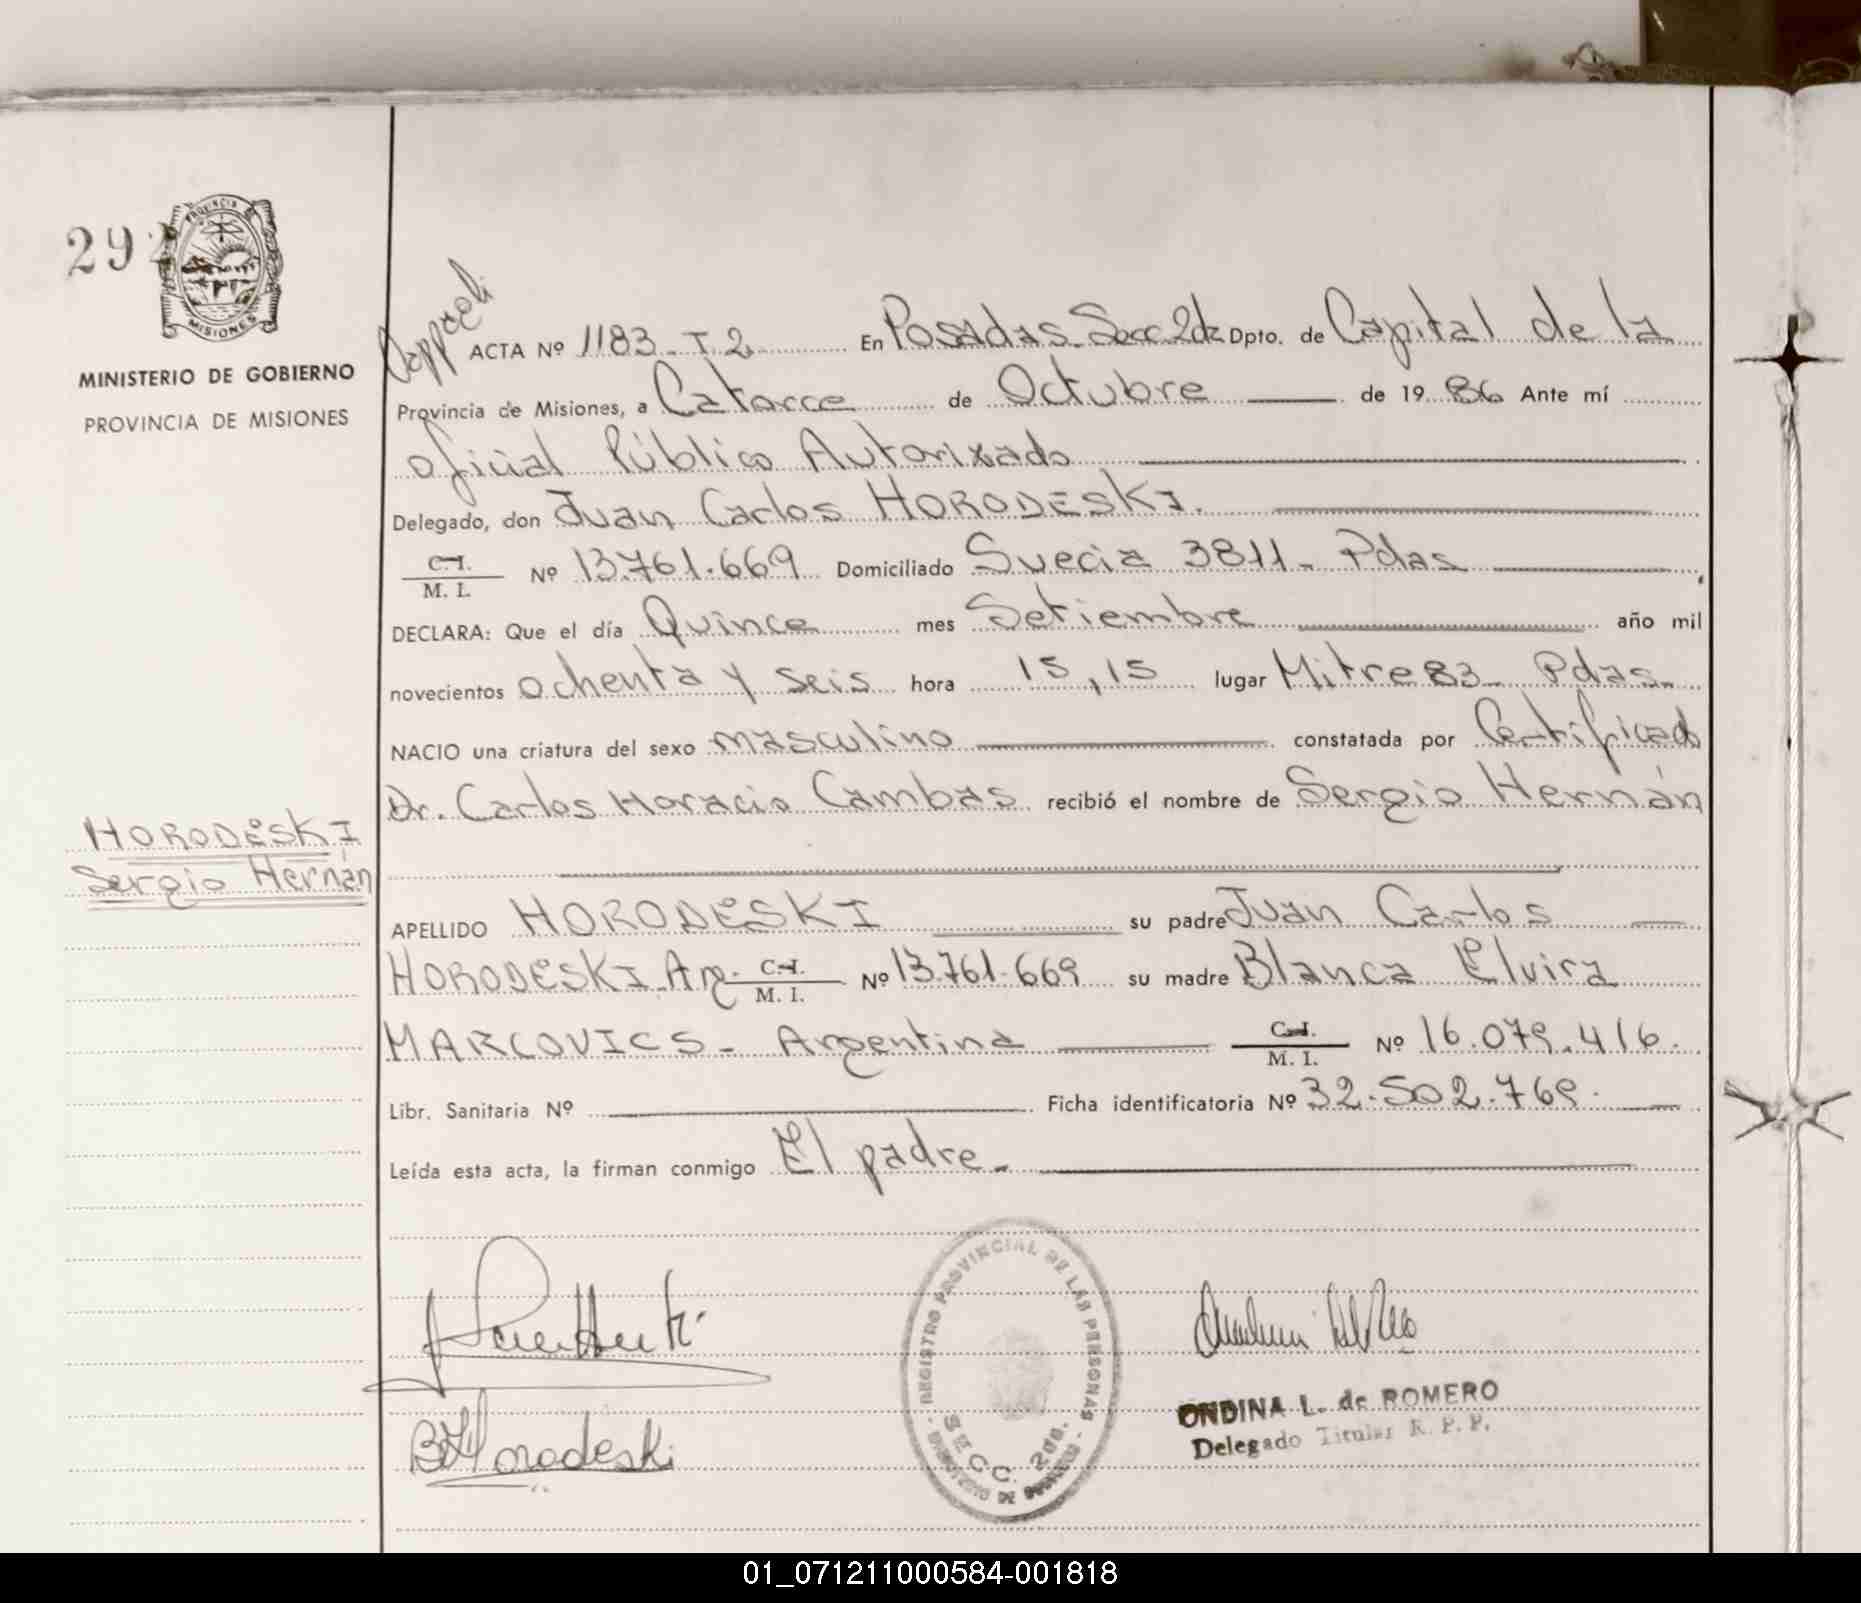 292
PROVINCIA DE
MISIONES
MINISTERIO DE GOBIERNO
PROVINCIA DE MISIONES
ACTA Nº 1183 - T 2 En Posadas Secc 2da Dpto. de Capital de la
Provincia de Misiones, a Catorce de Octubre de 1986 Ante mí
oficial Público Autorizado
Delegado, don Juan Carlos HORODESKI.
C. I.
M. I. Nº 13.761.669 Domiciliado Suecia 3811 - Pdas
DECLARA: Que el día Quince mes Setiembre año mil
novecientos ochenta y seis hora 15,15 lugar Mitre 83 - Pdas.
NACIO una criatura del sexo masculino constatada por Certificado
Dr. Carlos Horacio Cambas recibió el nombre de Sergio Hernán
HORODESKI
Sergio Hernán
APELLIDO HORODESKI su padre Juan Carlos
HORODESKI - Arg. C. I. M. I. Nº 13.761.669 su madre Blanca Elvira
MARCOVICS - Argentina C. I. M. I. Nº 16.079.416.
Libr. Sanitaria Nº Ficha identificatoria Nº 32.502.769.
Leída esta acta, la firman conmigo El padre.
REGISTRO PROVINCIAL DE LAS PERSONAS
SECC. 2da.
MINISTERIO DE GOBIERNO
B Horodeski
ONDINA L. de ROMERO
Delegado Titular R. P. P.
01_071211000584-001818